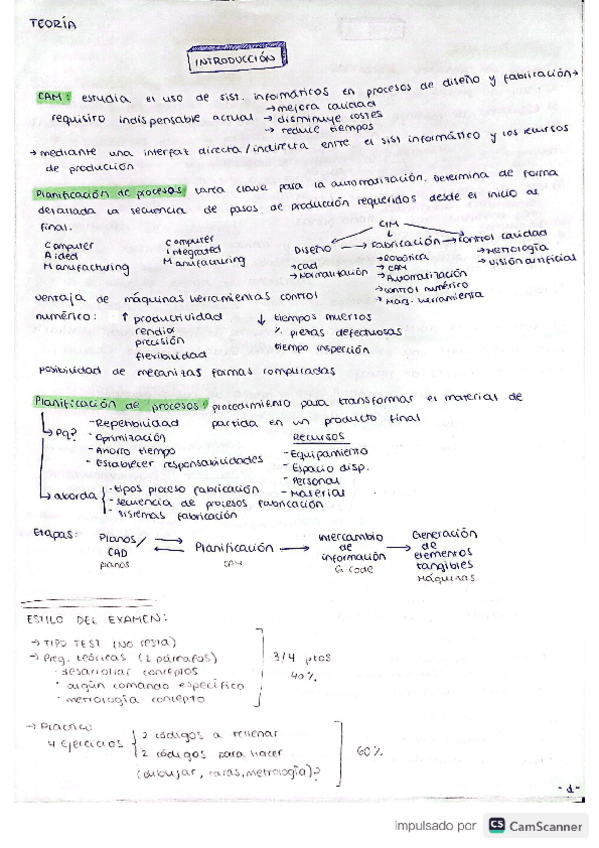 TEORÍA
INTRODUCCIÓN
CAM: estudia el uso de sist. informáticos en procesos de diseño y fabricación→
requisito indispensable actual → mejora calidad
→ disminuye costes
→ reduce tiempos
→ mediante una interfaz directa/indirecta entre el sist informático y los recursos
de producción
Planificación de procesos: tarea clave para la automatización. Determina de forma
detallada la secuencia de pasos de producción requeridos desde el inicio al
final.
CIM
Diseño ← Fabricación → Control calidad
Computer
Aided
Manufacturing
Computer
Integrated
Manufacturing
→ Cad
→ Normalización
→ Robótica
→ CAM
→ Automatización
→ control numérico
→ Maq. herramienta
→ Metrología
→ Visión artificial
ventaja de máquinas herramientas control
numérico: ↑ productividad
rendio
precisión
flexibilidad
↓ tiempos muertos
% piezas defectuosas
tiempo inspección
posibilidad de mecanizas formas complicadas
Planificación de procesos: procedimiento para transformar el material de
partida en un producto final
↳ Pq?
- Repetibilidad
- Optimización
- Ahorro tiempo
- Establecer responsabilidades
RECURSOS
- Equipamiento
- Espacio disp.
- Personal
- Material
↳ aborda
- tipos proceso fabricación
- secuencia de procesos fabricación
- sistemas fabricación
Etapas: Planos/
CAD
planos
Planificación
Intercambio
de
información
G code
Generación
de
elementos
tangibles
Máquinas
ESTILO DEL EXAMEN:
→ TIPO TEST (NO resta)
→ Preg. teóricas (2 párrafos)
· desarrollar conceptos
· algún comando específico
· metrología concepto
3/4 ptos
40%
→ Práctico
4 Ejercicios
2 códigos a rellenar
2 códigos para hacer
(dibujar, caras, metrología)?
60%
- 1 -
impulsado por CS CamScanner